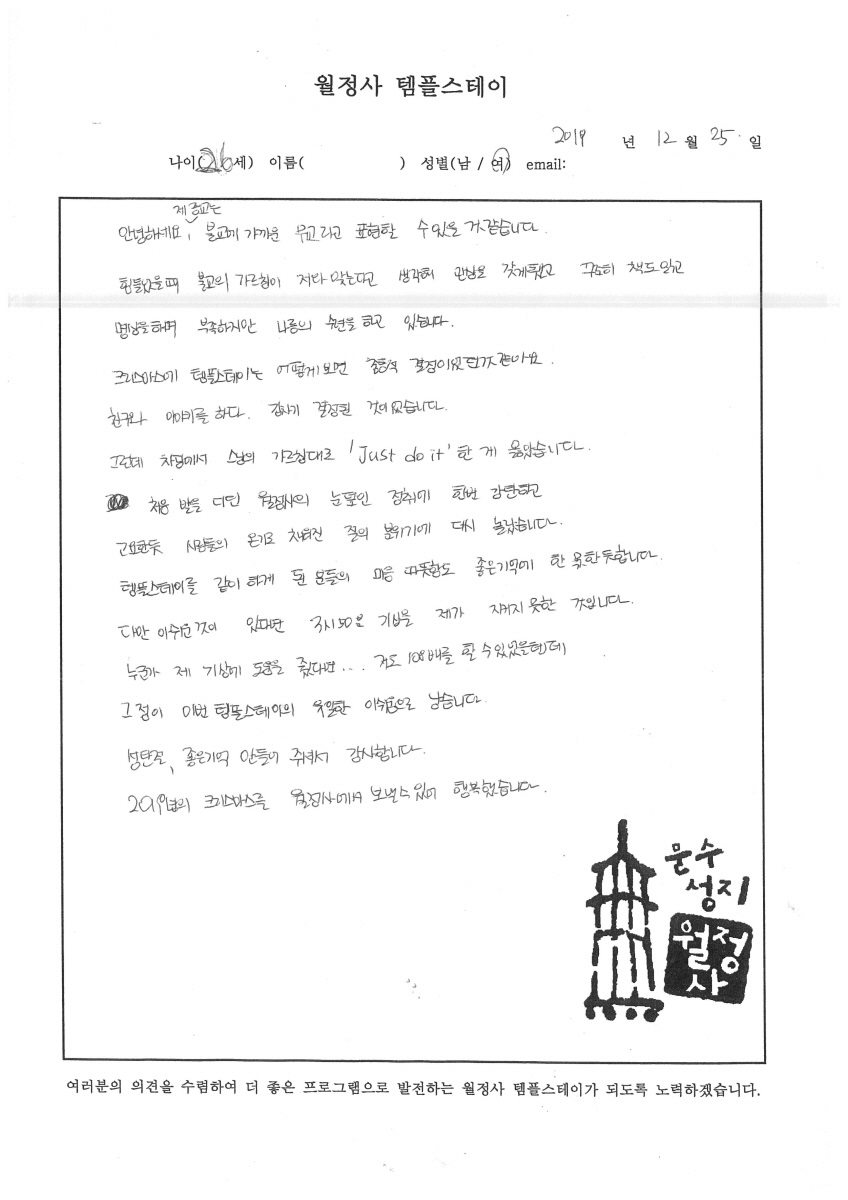 월정사 템플스테이
2019 년 12 월 25 일
나이(26세) 이름( ) 성별(남 / 여) email:
제 종교는
안녕하세요, 불교에 가까운 무교라고 표현할 수 있을 거 같습니다.
힘들었을때 불교의 가르침이 저랑 맞는다고 생각해 관심을 갖게됐고 꾸준히 책도 읽고
명상을하며 부족하지만 나름의 수련을 하고 있습니다.
크리스마스에 템플스테이는 어떻게보면 충동적 결정이었던거 같아요.
친구와 이야기를 하다. 갑자기 결정된 것이었습니다.
그런데 차담에서 스님의 가르침대로 'Just do it' 한 게 옳았습니다.
처음 발을 디딘 월정사의 눈덮인 정취에 한번 감탄하고
고요한듯 사람들의 온기로 채워진 절의 분위기에 다시 놀랐습니다.
템플스테이를 같이 하게 된 분들의 마음 따뜻함도 좋은기억에 한 몫한 듯합니다.
다만 아쉬운것이 있다면 3시50분 기상을 제가 지키지 못한 것입니다.
누군가 제 기상에 도움을 줬다면... 저도 108배를 할 수 있었을텐데
그 점이 이번 템플스테이의 유일한 아쉬움으로 남습니다.
성탄절, 좋은기억 만들어 주셔서 감사합니다.
2019년의 크리스마스를 월정사에서 보낼수있어 행복했습니다.
문수
성지
월정
사
여러분의 의견을 수렴하여 더 좋은 프로그램으로 발전하는 월정사 템플스테이가 되도록 노력하겠습니다.